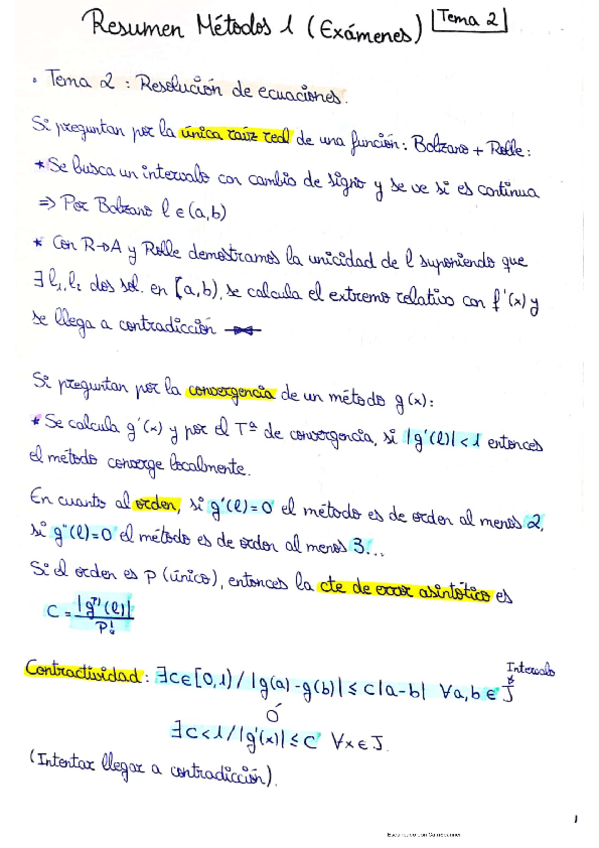 Resumen Métodos 1 (Exámenes) Tema 2
• Tema 2 : Resolución de ecuaciones.
Si preguntan por la única raíz real de una función: Bolzano + Rolle:
* Se busca un intervalo con cambio de signo y se ve si es continua
⇒ Por Bolzano l ∈ (a,b)
* Con R→A y Rolle demostramos la unicidad de l suponiendo que
∃ l₁, l₂ dos sol. en [a,b), se calcula el extremo relativo con f'(x) y
se llega a contradicción
Si preguntan por la convergencia de un método g(x):
* Se calcula g'(x) y por el Tª de convergencia, si |g'(l)| < 1 entonces
el método converge localmente.
En cuanto al orden, si g'(l)=0 el método es de orden al menos 2,
si g''(l)=0 el método es de orden al menos 3...
Si el orden es P (único), entonces la cte de error asintótico es
C = |gᴾ⁾(l)| / P!
Intervalo
Contractividad: ∃c∈[0,1) / |g(a)-g(b)| ≤ c|a-b| ∀a,b ∈ J
Ó
∃c<1 / |g'(x)| ≤ c ∀x∈J.
(Intentar llegar a contradicción).
1
Escaneado con CamScanner